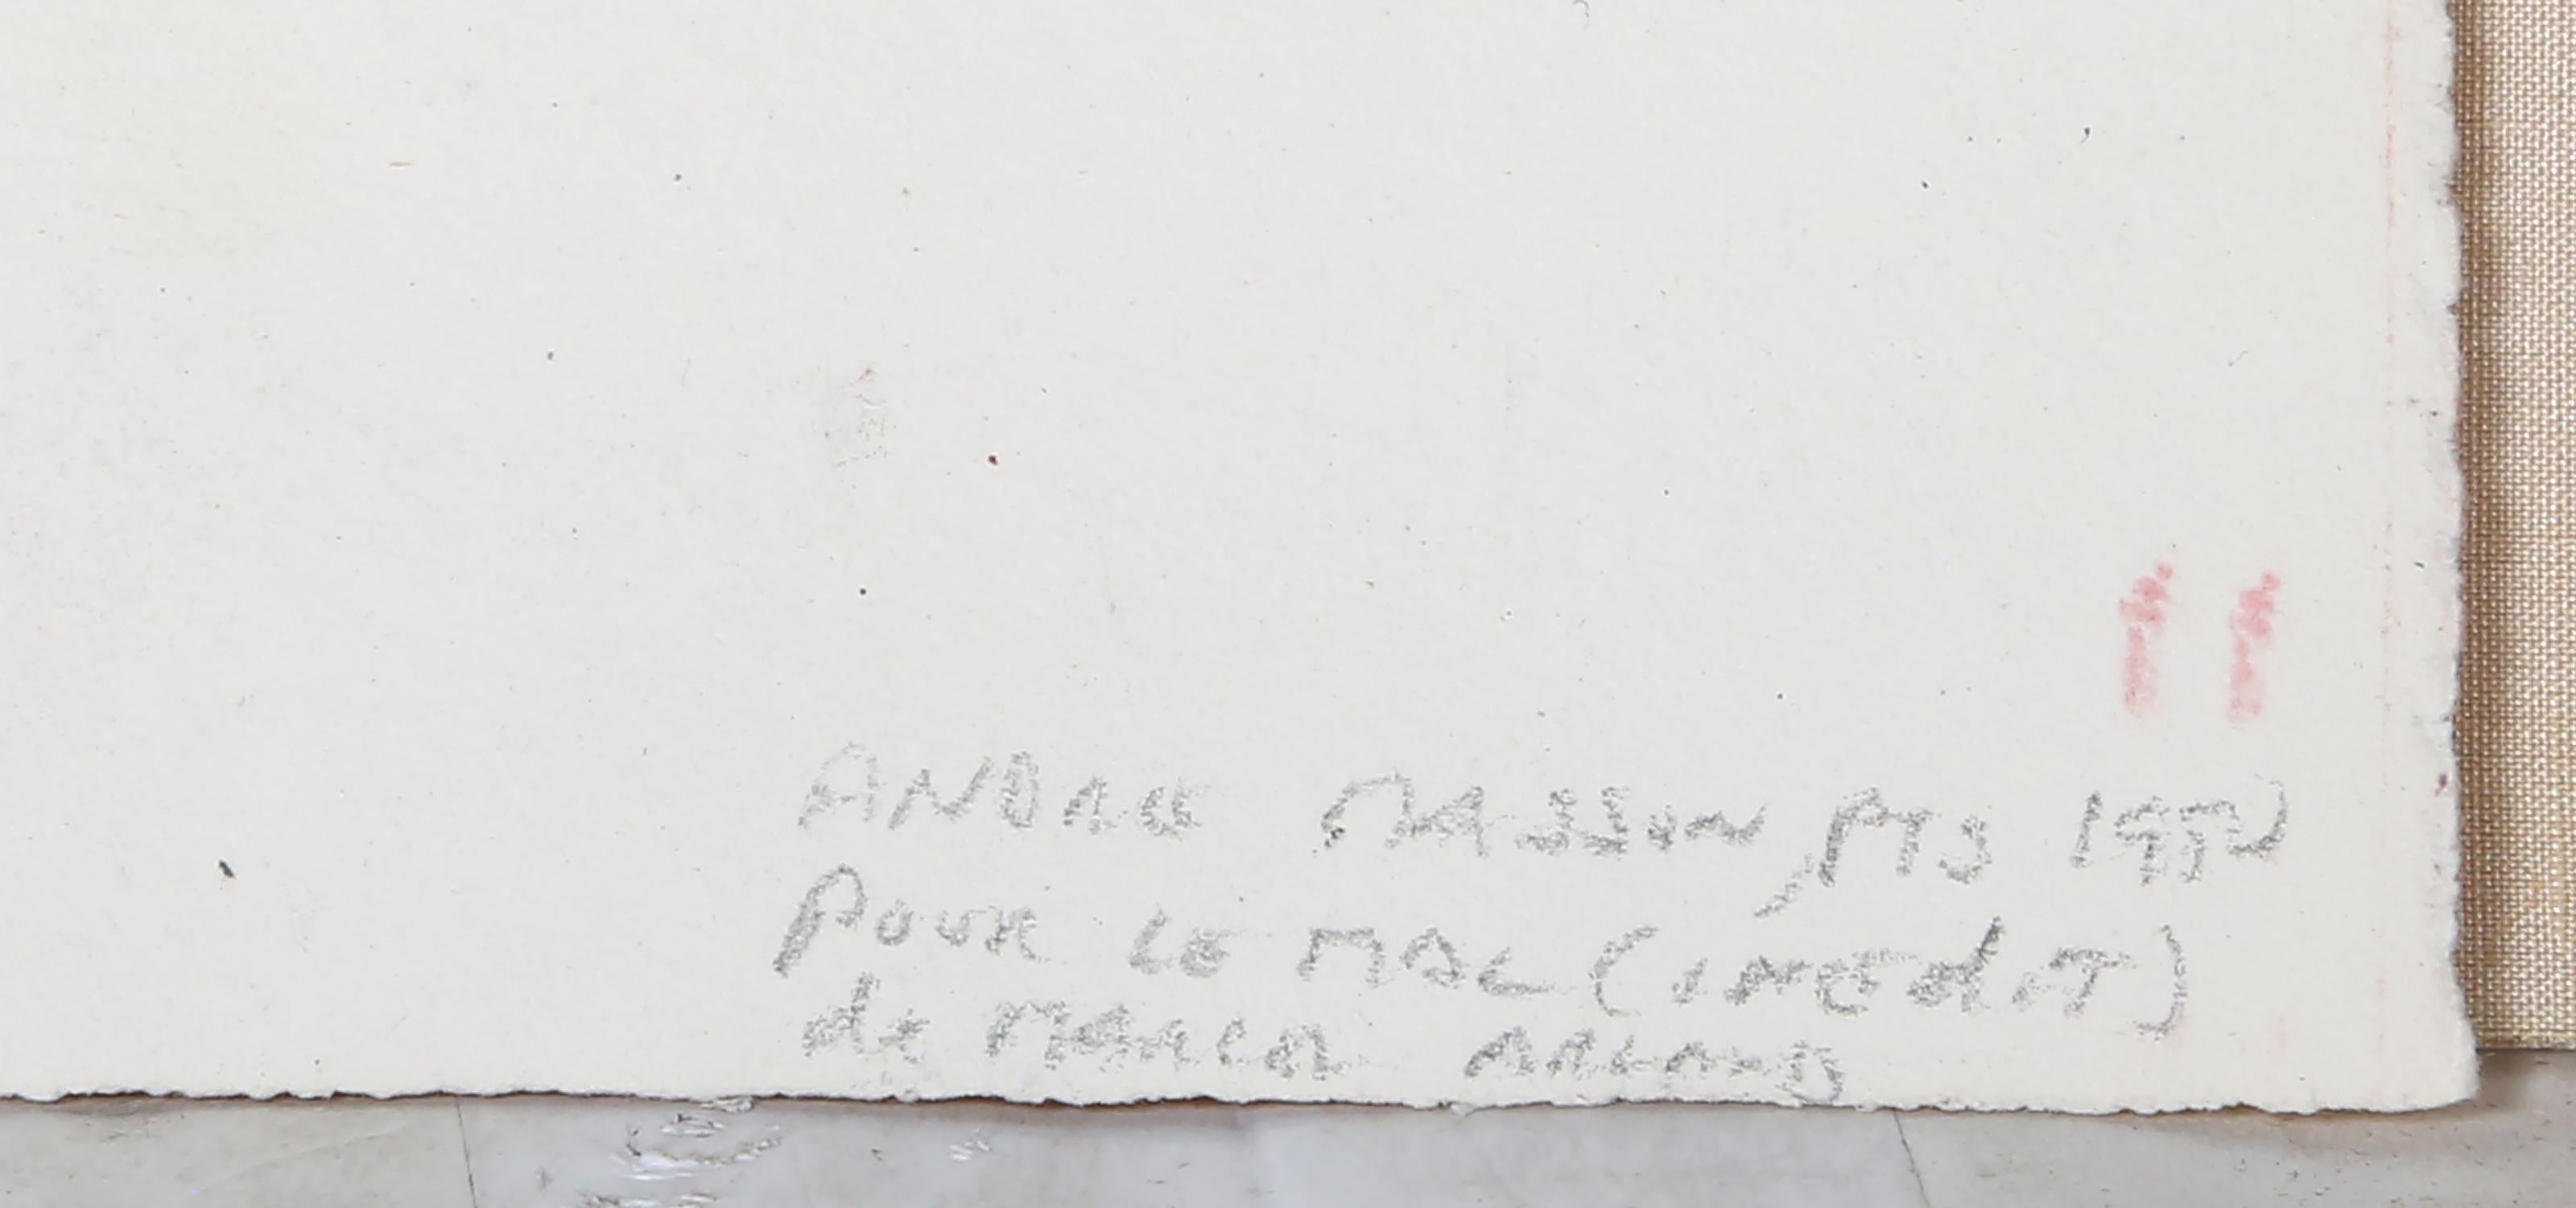 11
ANDRE MASSON, PTS 1972
POUR LE MAL (INEDIT)
de MARCEL ARLAND